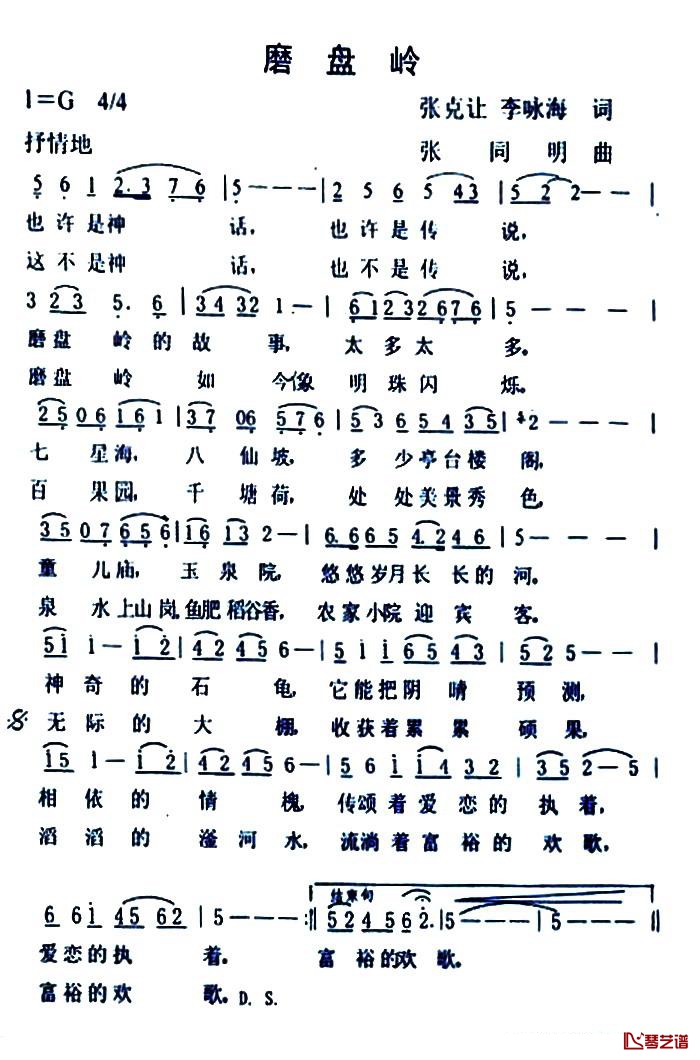 磨盘岭
1=G 4/4
张克让 李咏海 词
抒情地
张同明 曲
5 6 1 2.3 7 6 | 5 - - - | 2 5 6 5 4 3 | 5 2 2 - - |
也许是神话, 也许是传说,
这不是神话, 也不是传说,
3 2 3 5. 6 | 3 4 3 2 1 - | 6 1 2 3 2 6 7 6 | 5 - - - |
磨盘岭的故事, 太多太多。
磨盘岭如今像明珠闪烁。
2 5 0 6 1 6 1 | 3 7 0 6 5 7 6 | 5 3 6 5 4 3 5 | 2 - - - |
七星海, 八仙坡, 多少亭台楼阁,
百果园, 千塘荷, 处处美景秀色,
3 5 0 7 6 5 6 | 1 6 1 3 2 - | 6. 6 6 5 4. 2 4 6 | 5 - - - |
童儿庙, 玉泉院, 悠悠岁月长长的河。
泉水上山岗,鱼肥稻谷香, 农家小院迎宾客。
5 1 1 - 1 2 | 4 2 4 5 6 - | 5 1 1 6 5 4 3 | 5 2 5 - - |
神奇的石龟, 它能把阴晴预测,
无际的大棚, 收获着累累硕果,
1 5 1 - 1 2 | 4 2 4 5 6 - | 5 6 1 2 4 4 2 | 3 5 2 - 5 |
相依的情槐, 传颂着爱恋的执着,
滔滔的滏河水, 流淌着富裕的欢歌,
结束句
6 6 1 4 5 6 2 | 5 - - - :‖ 5 2 4 5 6 2. | 5 - - - | 5 - - - ‖
爱恋的执着。 富裕的欢歌。
富裕的欢歌。D.S.
琴艺谱